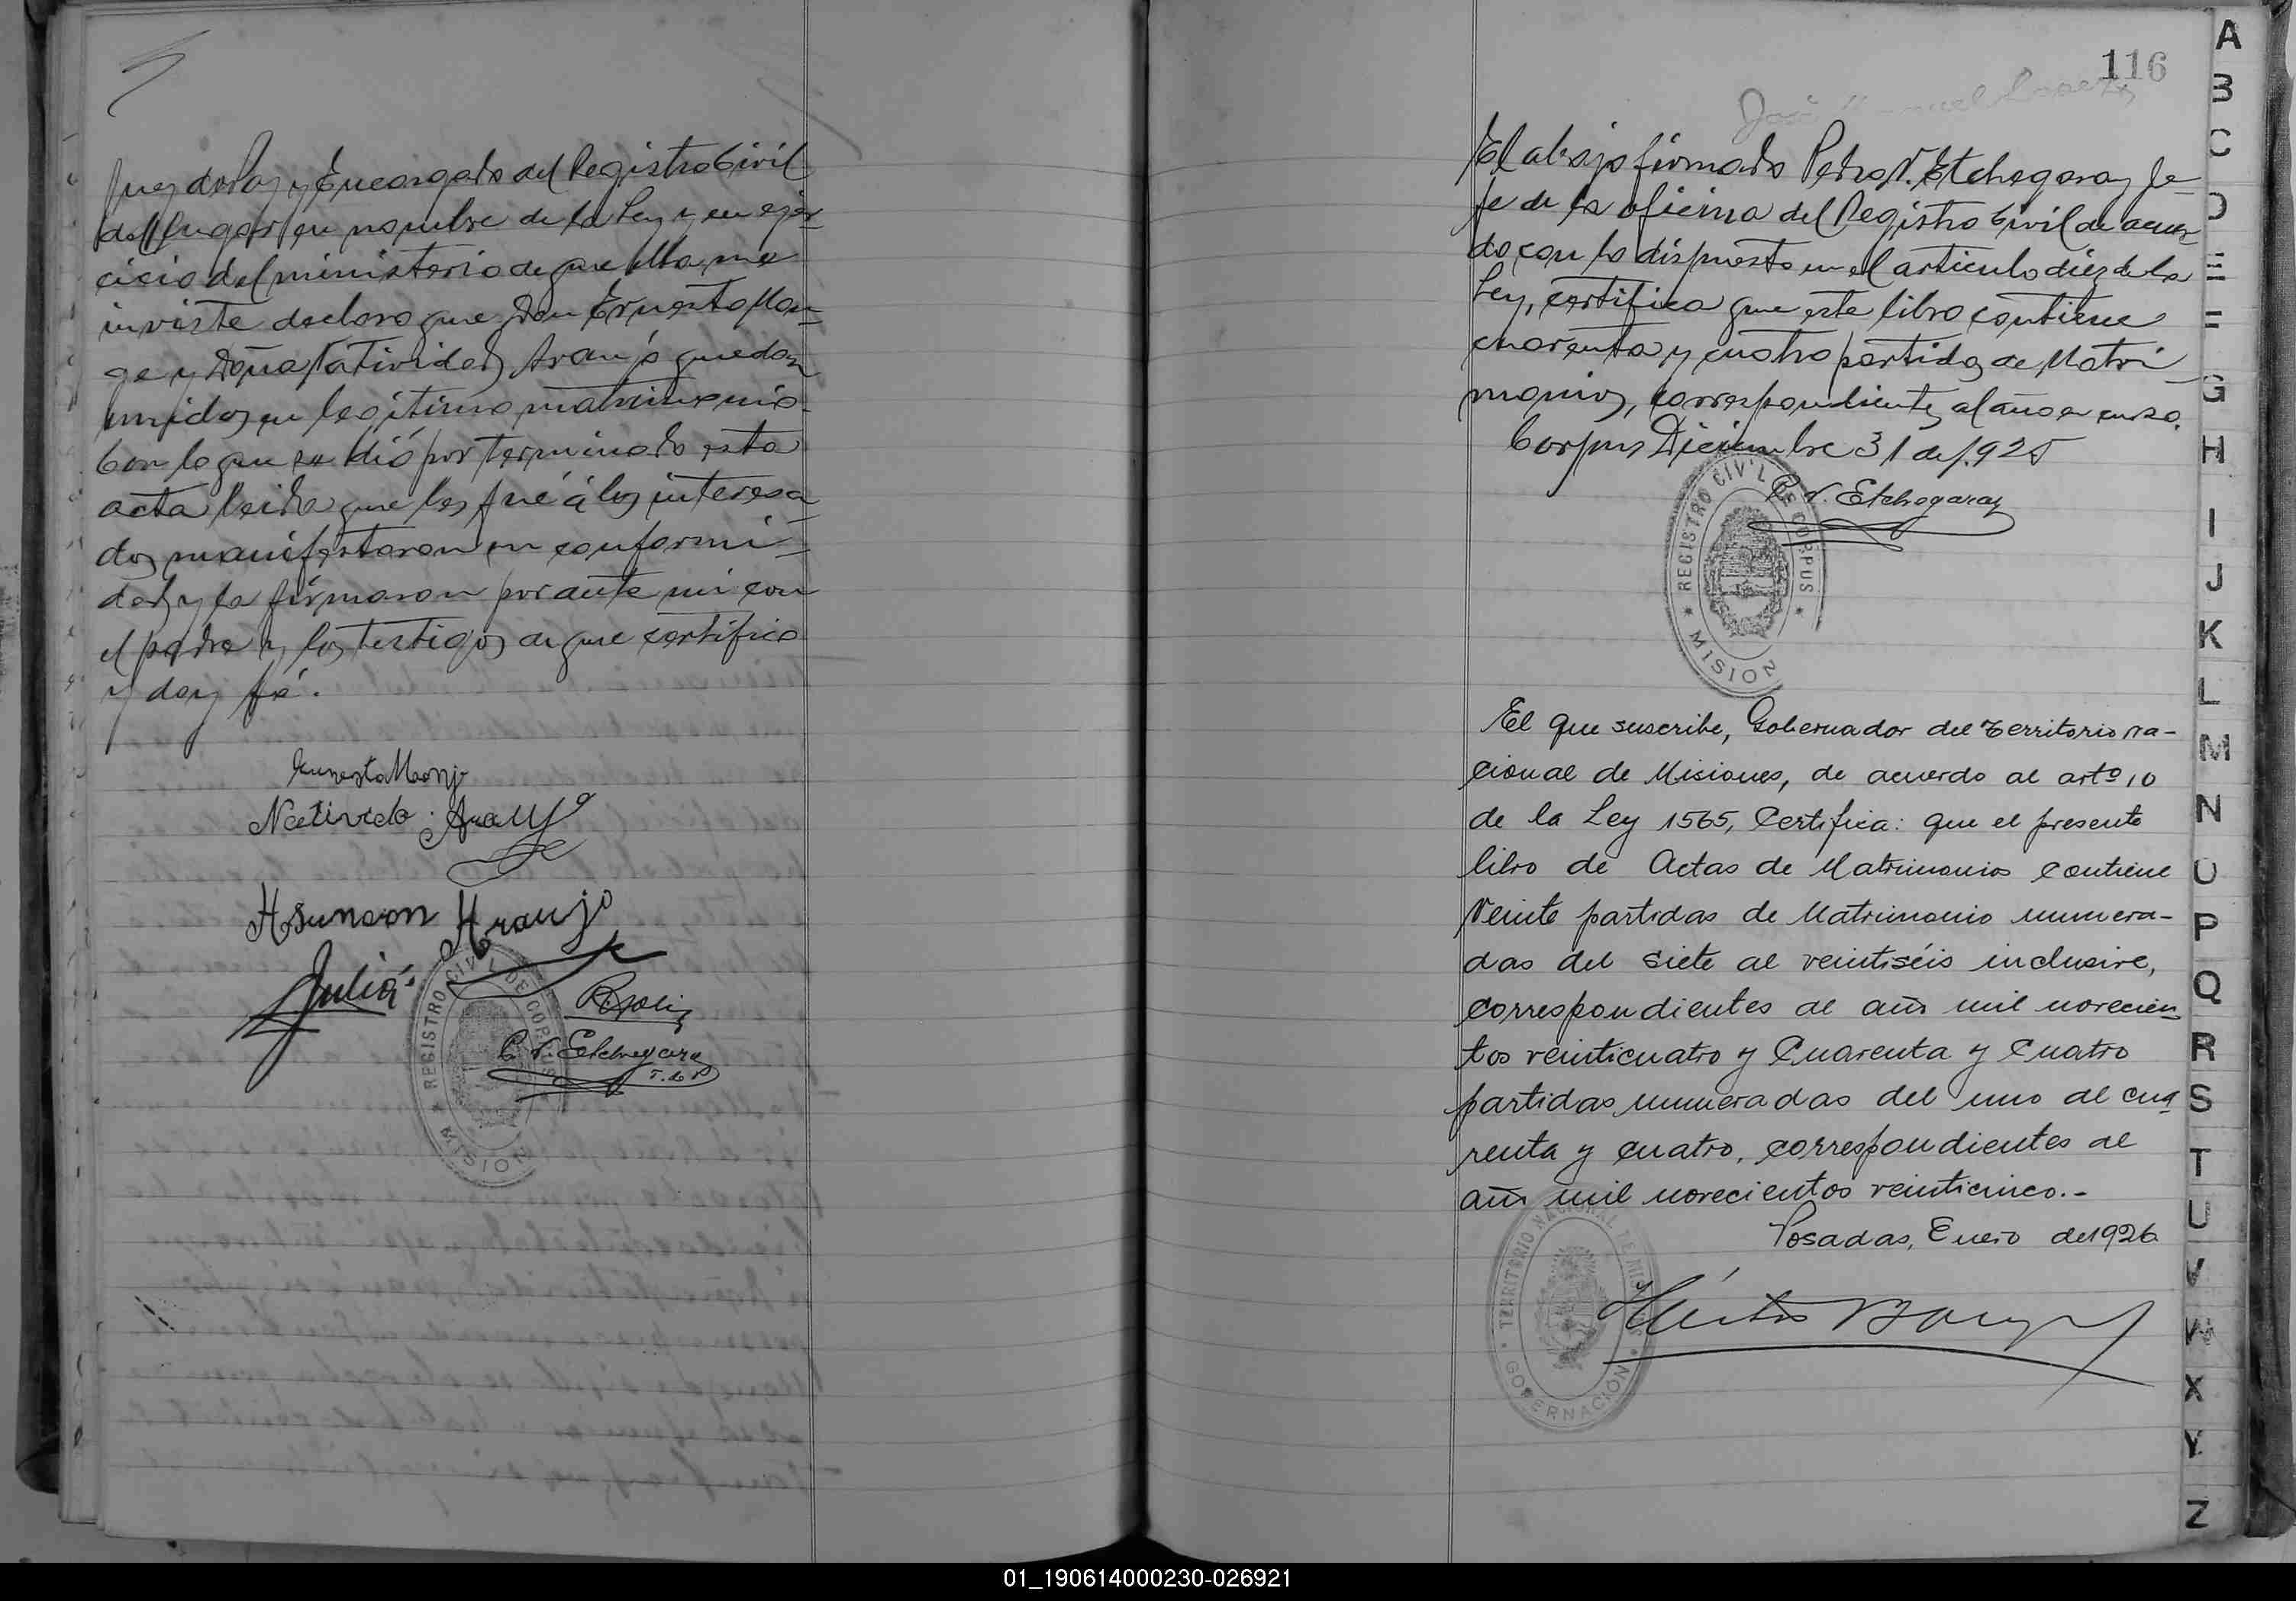 Juez de Paz y Encargado del Registro Civil
del lugar en nombre de la Ley y en ejer-
cicio del ministerio de que ella me
inviste declaro que Don Ernesto Mon-
ge y Doña Natividad Araujo quedan
unidos en legítimo matrimonio.
Con lo que se dió por terminado esta
acta leida que les fué á los interesa-
dos manifestaron su conformi-
dad y la firmaron por ante mi con
el padre y los testigos de que certifico
y doy fé.
Ernesto Monj
Natividad Araujo
Asuncion Araujo
Juliá
P. V. Etchegaray
J. de P.
REGISTRO CIVIL DE CORPUS
MISION
116
José Manuel Lopez
El abajo firmado Pedro V. Etchegaray Je-
fe de la oficina del Registro Civil de acuer-
do con lo dispuesto en el artículo diez de la
Ley, certifica que este libro contiene
cuarenta y cuatro partidas de Matri-
monios, correspondientes al año en curso.
Corpus Diciembre 31 de 1.925
P. V. Etchegaray
REGISTRO CIVIL DE CORPUS
MISION
El que suscribe, Gobernador del Territorio Na-
cional de Misiones, de acuerdo al artº 10
de la Ley 1565, Certifica: que el presente
libro de Actas de Matrimonios contiene
Veinte partidas de Matrimonio numera-
das del siete al veintiséis inclusive,
correspondientes al año mil novecien-
tos veinticuatro y Cuarenta y Cuatro
partidas numeradas del uno al cua
renta y cuatro, correspondientes al
año mil novecientos veinticinco.-
Posadas, Enero de 1926
TERRITORIO NACIONAL DE MISIONES
GOBERNACIÓN
A
B
C
D
E
F
G
H
I
J
K
L
M
N
O
P
Q
R
S
T
U
V
W
X
Y
Z
01_190614000230-026921